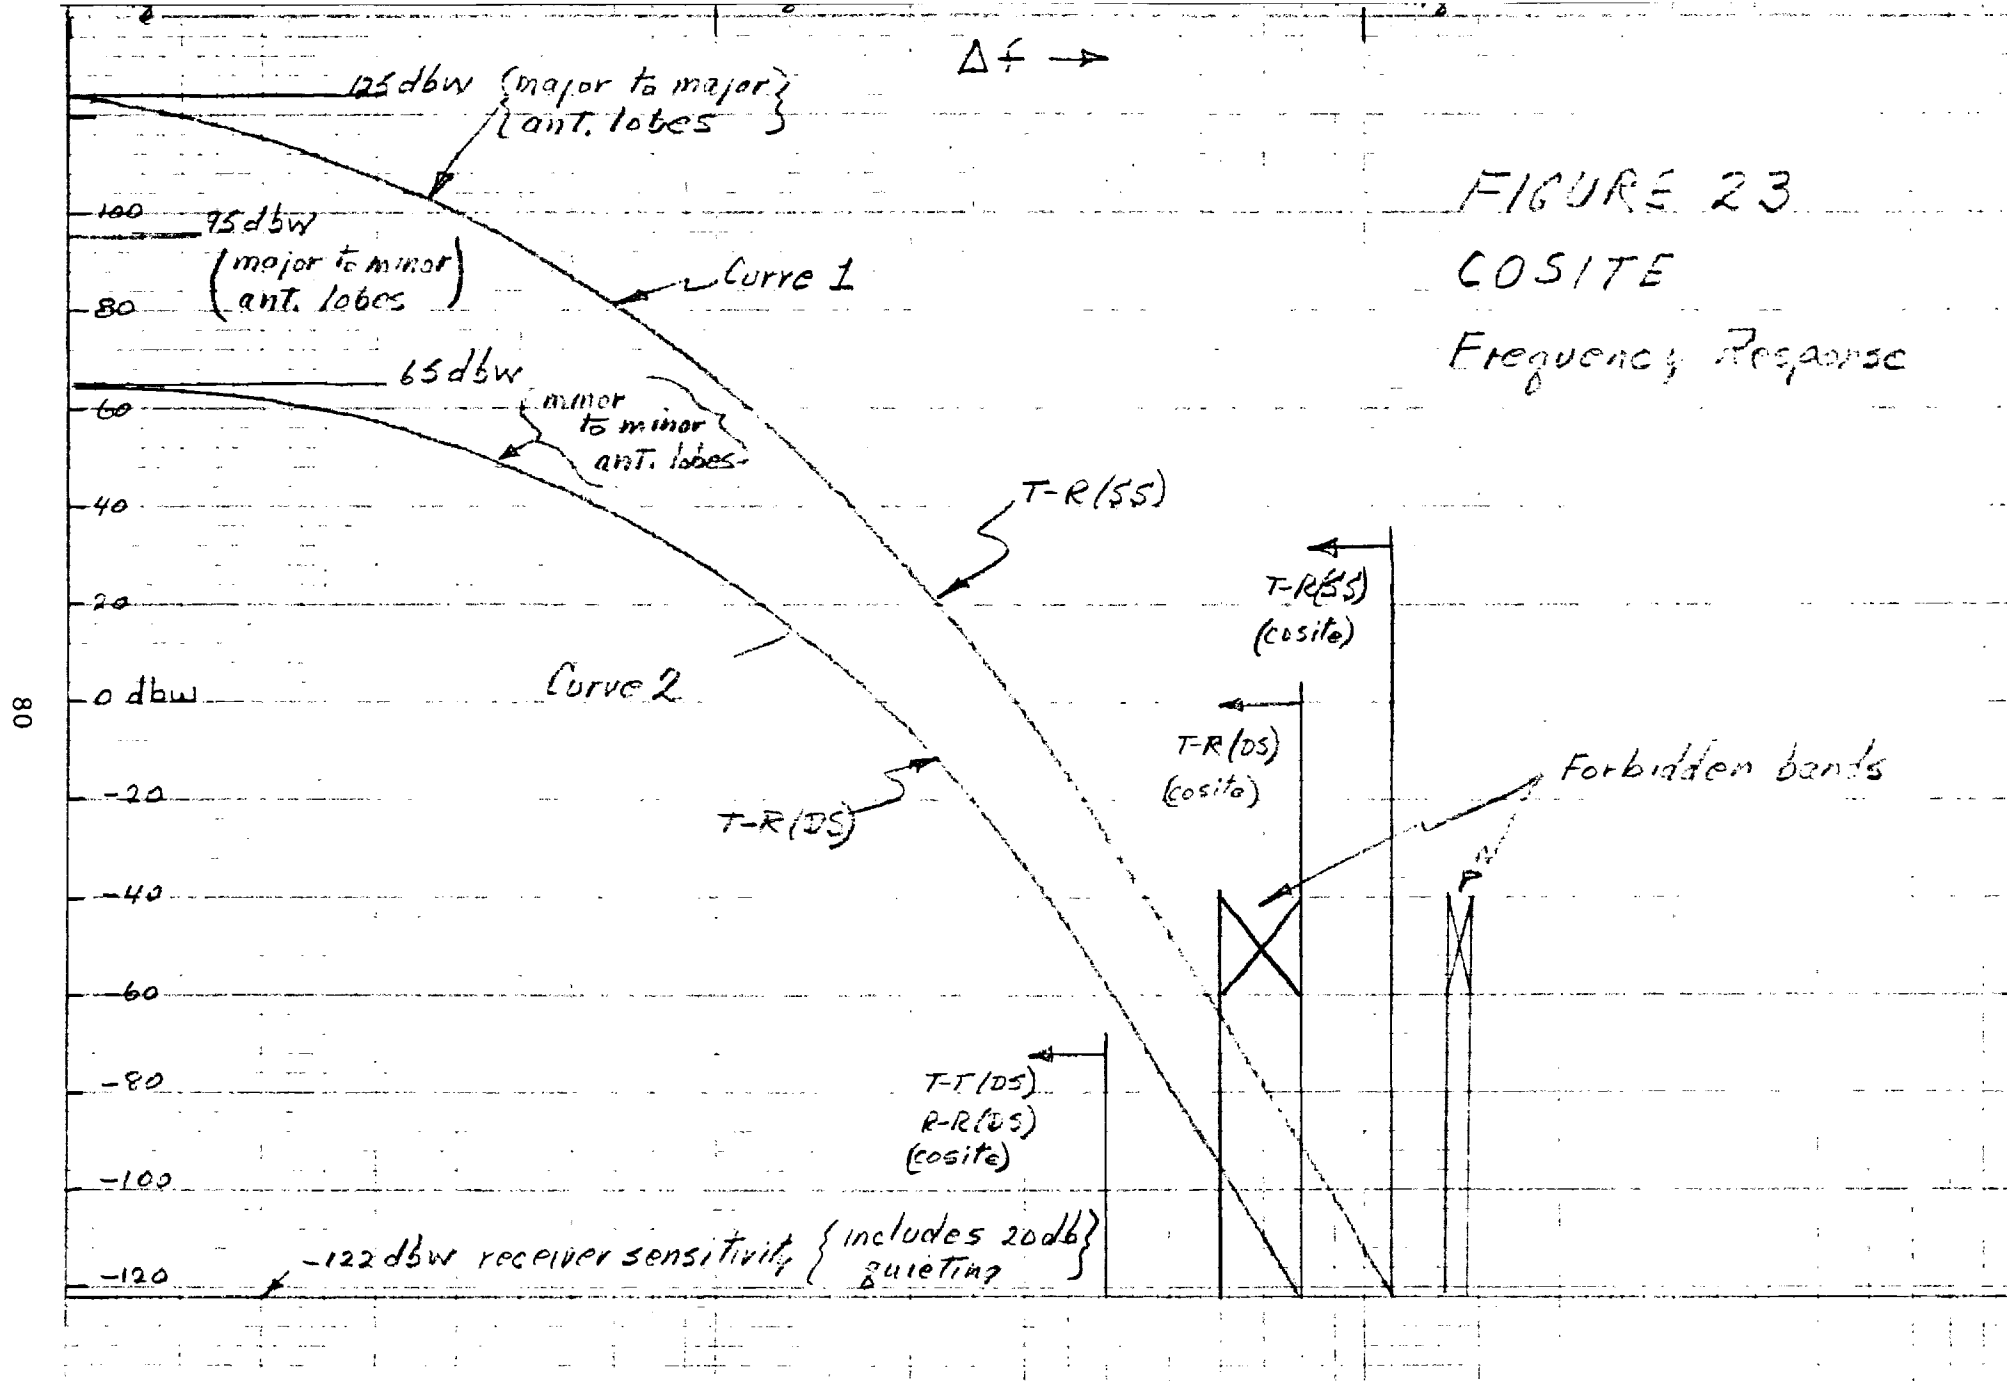 Δf →
125 dbw (major to major
ant. lobes)
FIGURE 23
COSITE
Frequency Response
100
95 dbw
(major to minor
ant. lobes)
Curve 1
80
65 dbw
(minor
to minor
ant. lobes)
60
40
T-R(SS)
20
T-R(SS)
(cosite)
0 dbw
Curve 2
T-R(DS)
(cosite)
Forbidden bands
-20
T-R(DS)
-40
-60
-80
T-T(DS)
R-R(DS)
(cosite)
-100
-122 dbw receiver sensitivity {includes 20 db
quieting}
-120
80